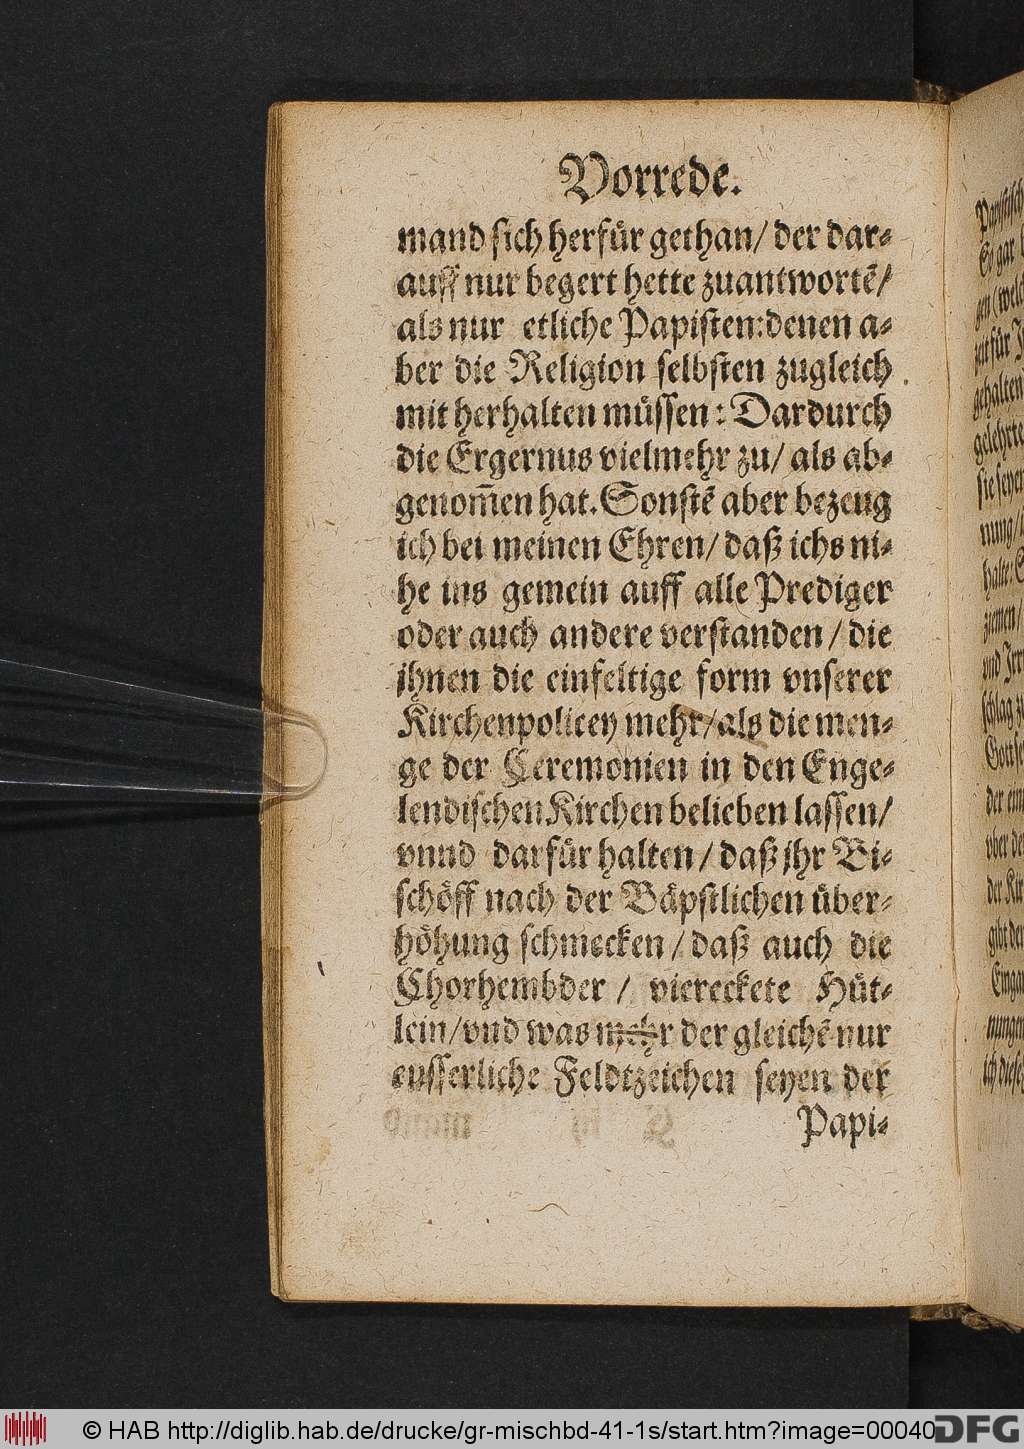 Vorrede.
mand sich herfür gethan/ der dar⸗
auff nur begert hette zuantwortē/
als nur etliche Papisten: denen a⸗
ber die Religion selbsten zugleich
mit herhalten müssen: Dardurch
die Ergernus vielmehr zu/ als ab⸗
genom̄en hat. Sonstē aber bezeug
ich bei meinen Ehren/ daß ichs ni⸗
he ins gemein auff alle Prediger
oder auch andere verstanden/ die
jhnen die einfeltige form vnserer
Kirchenpolicey mehr/ als die men⸗
ge der Ceremonien in den Enge⸗
lendischen Kirchen belieben lassen/
vnnd darfür halten/ daß jhr Bi⸗
schöff nach der Bäpstlichen über⸗
höhung schmecken/ daß auch die
Chorhembder/ viereckete Hüt⸗
lein/ vnd was mehr der gleichē nur
eusserliche Feldtzeichen seyen der
Papi⸗
Papstisch
gar
gen (welch
zeit für J
gehalten
gelehrte
sie seyen
nung/
halte: S
ziemen/
und Irr
schlag z
der ein
vber de
der Kir
gibt der
Eingan
nungen
ich diese
© HAB http://diglib.hab.de/drucke/gr-mischbd-41-1s/start.htm?image=00040
DFG